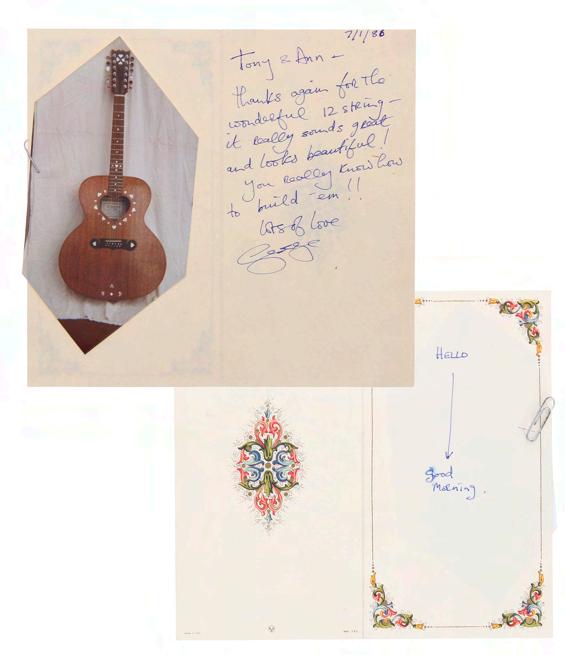 7/1/86
Tony & Ann –
thanks again for the
wonderful 12 string –
it really sounds great
and looks beautiful!
you really know how
to build 'em!!
lots of love
George
HELLO
good
morning.